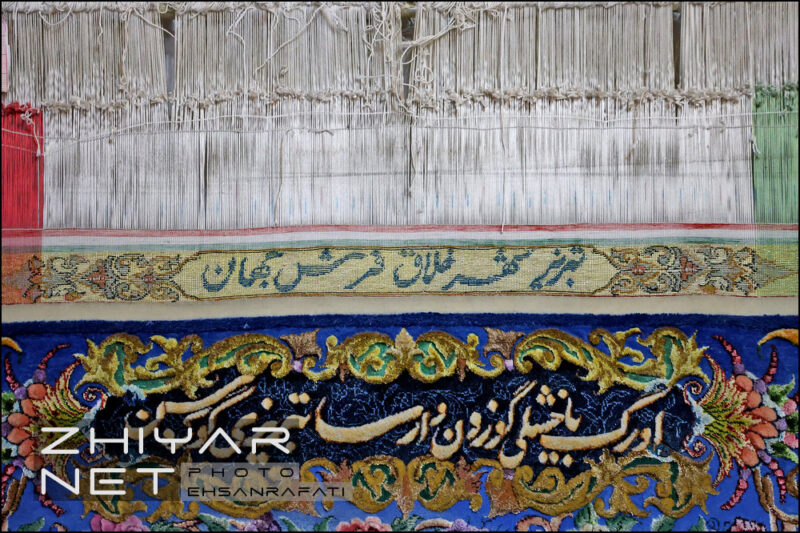 تبریز شهر خلاق فرش جهان
اورک باخشلی وارسا تبریزی
ZHIYAR
NET
PHOTO
EHSANRAFATI